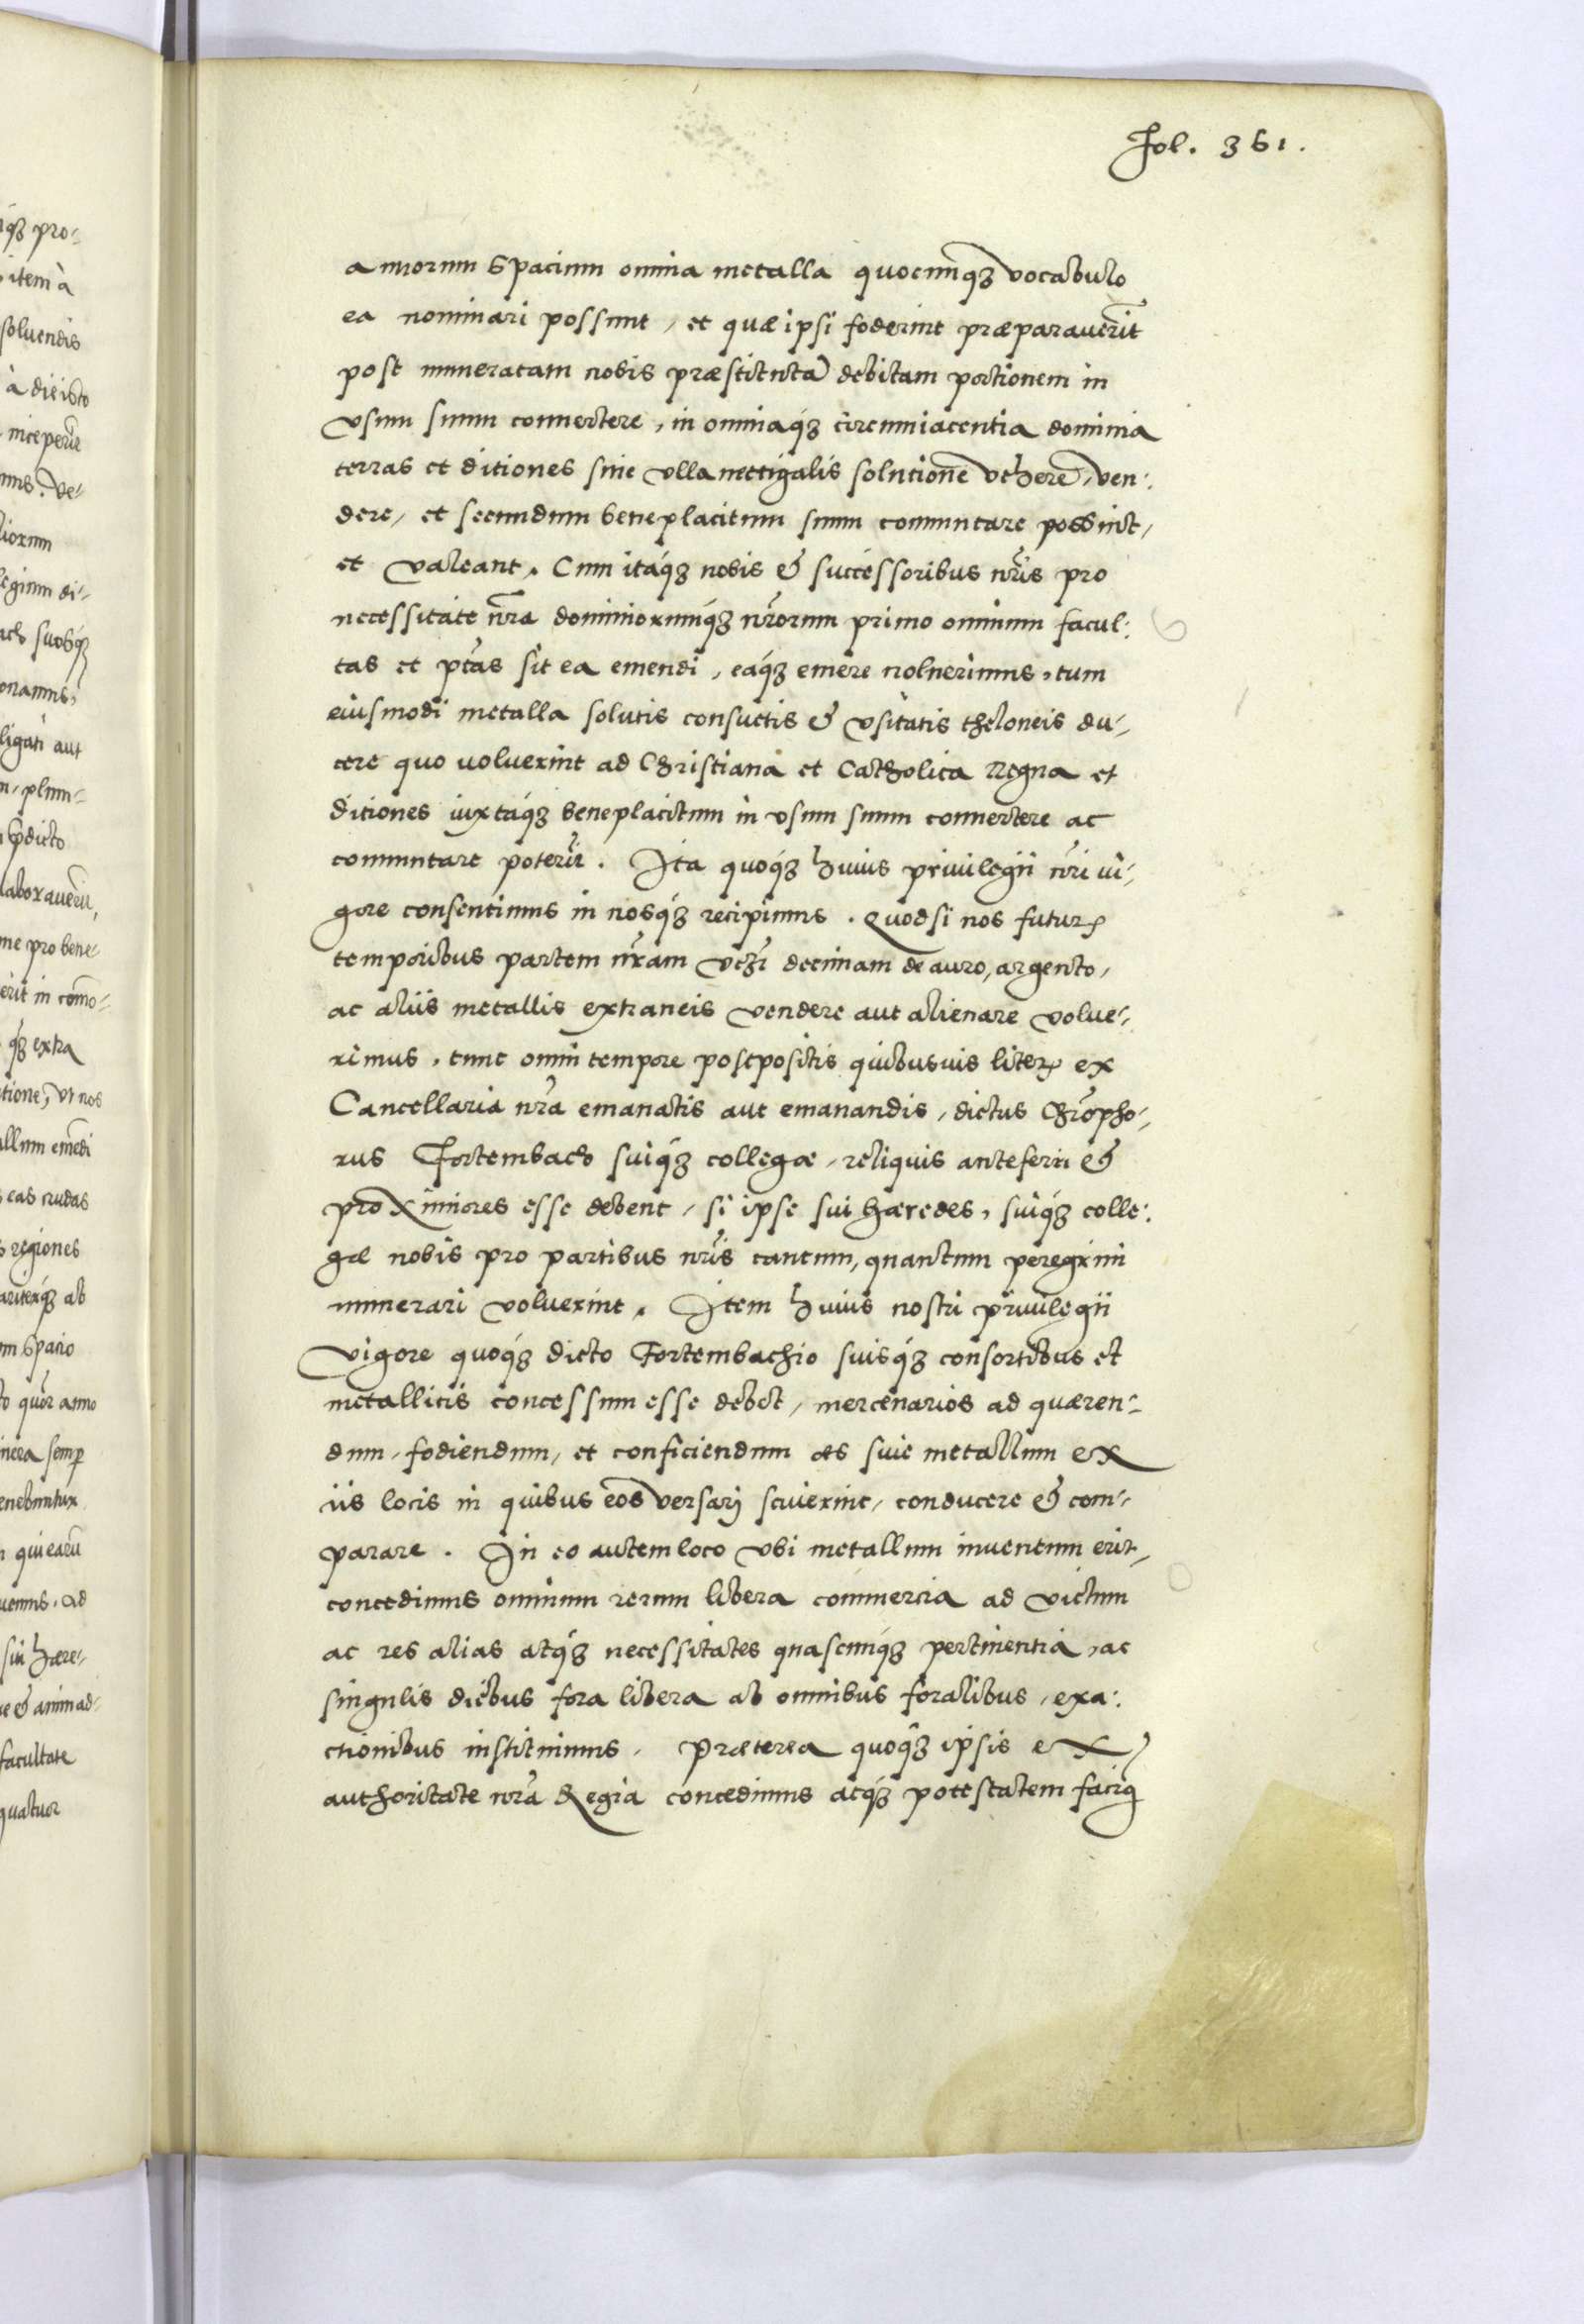 Fol. 361.
annorum spacium omnia metalla quocumq́ꝫ vocabulo
ea nominari possunt, et quæ ipsi foderint præparaverīt
post numeratam nobis præstitutā debitam portionem in
vsum suum convertere, in omniaq́ꝫ circumiacentia dominia
terras et ditiones sine vlla vectigalis solutionē vehere, ven:
dere, et secundum beneplacitum suum commutare possint,
et valeant. Cum itaq́ꝫ nobis & successoribus nr̃is pro
necessitate nr̃a dominiorumq́ꝫ nr̃orum primo omnium facul:
tas et ptãs sit ea emendi, eaq́ꝫ emere noluerimus, tum
eiusmodi metalla solutis consuetis & vsitatis theloneis du-
cere quo voluerint ad Christiana et Catholica Regna et
ditiones iuxtaq́ꝫ beneplacitum in vsum suum convertere ac
commutare poterūt. Ita quoq́ꝫ huius privilegii nr̃i vi-
gore consentimus in nosq́ꝫ recipimus. Quodsi nos futurꝭ
temporibus partem nr̃am vꝫi decimam de auro, argento,
ac aliis metallis extraneis vendere aut alienare volue-
rimus, tunc omni tempore postpositis quibusuis literꝭ ex
Cancellaria nr̃a emanatis aut emanandis, dictus Chr̃opho-
rus Fortembach suiq́ꝫ collegæ, reliquis anteferri &
proximiores esse debent, si ipse sui hæredes, suiq́ꝫ colle:
gæ nobis pro partibus nr̃is tantum, quantum peregrini
numerari voluerint. Item huius nostri privilegii
vigore quoq́ꝫ dicto Fortembachio suisq́ꝫ consortibus et
metallicis concessum esse debet, mercenarios ad quæren-
dum, fodiendum, et conficiendum æs siue metallum ex
iis locis in quibus eos versari sciuerint, conducere & com-
parare. In eo autem loco vbi metallum inuentum erit,
concedimus omnium rerum libera commercia ad victum
ac res alias atq́ꝫ necessitates quascumq́ꝫ pertinentia, ac
singulis diebus fora libera ab omnibus foralibus, exa:
ctionibus instituimus. Præterea quoq́ꝫ ipsis ex
authoritate nr̃a Regia concedimus atq́ꝫ potestatem faciꝫ